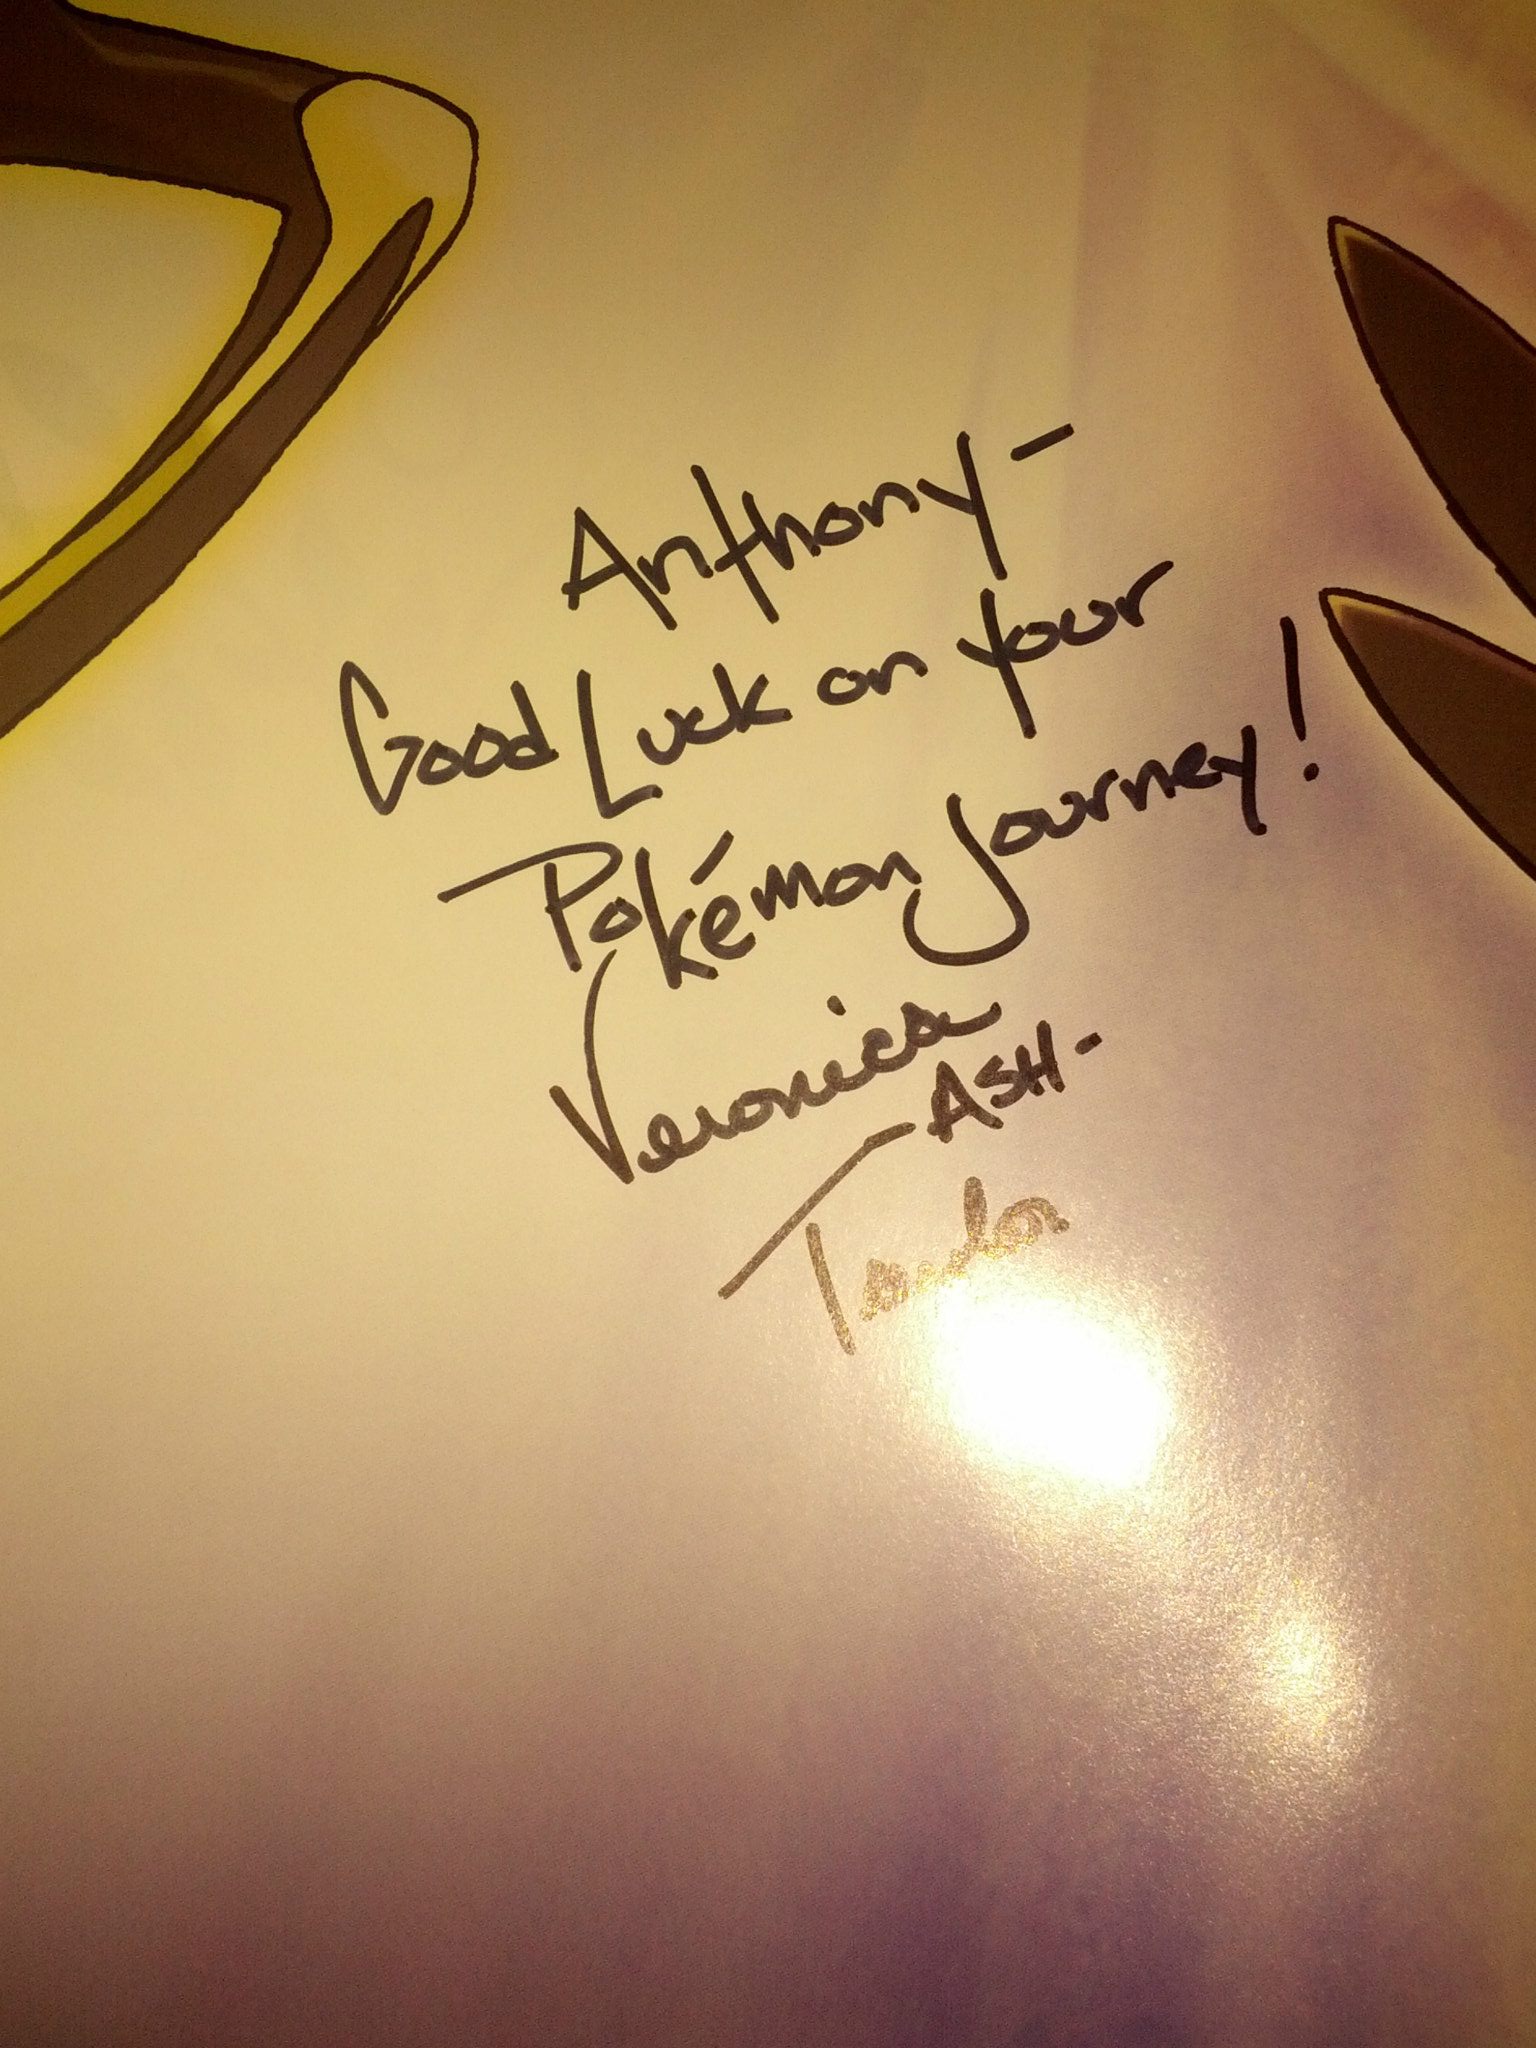 Anthony-
Good Luck on your
Pokémon Journey!
Veronica
-ASH-
Taylor